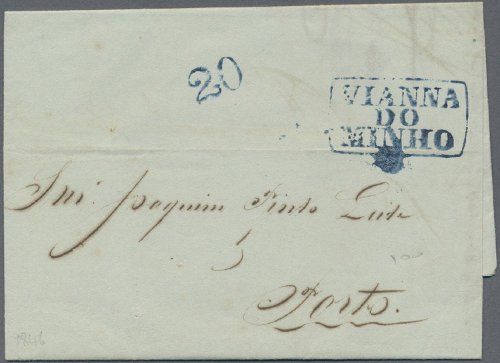 20
VIANNA
DO
MINHO
Snr. Joaquim Pinto Leite
Porto.
100
1846